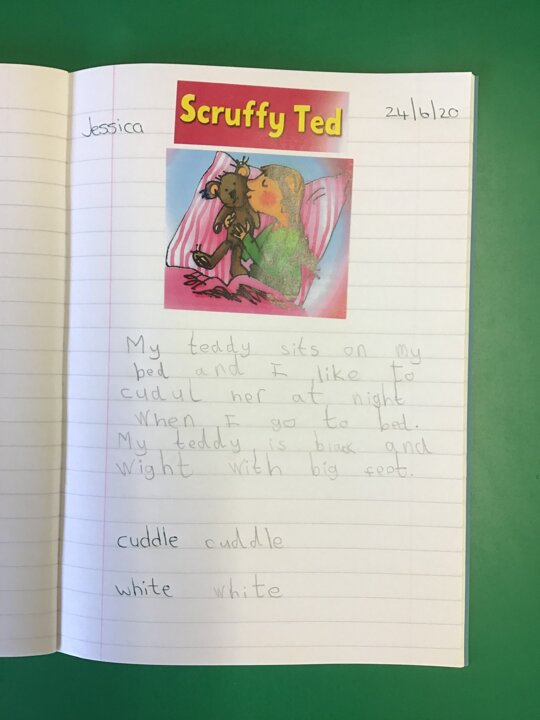 Scruffy Ted
24/6/20
Jessica
My teddy sits on my
bed and I like to
cudul her at night
when I go to bed.
My teddy is black and
wight with big feet.
cuddle cuddle
white white